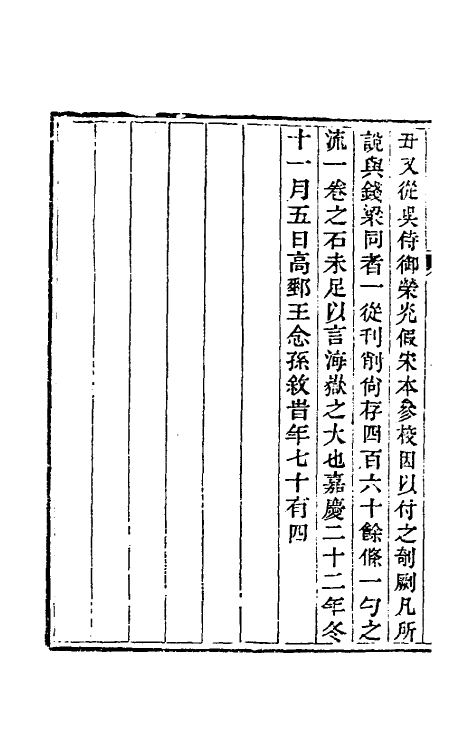 丑又從吳侍御榮光假宋本參校因以付之剞劂凡所
說與錢梁同者一從刊削尙存四百六十餘條一勺之
流一卷之石未足以言海嶽之大也嘉慶二十二年冬
十一月五日高郵王念孫敘昔年七十有四